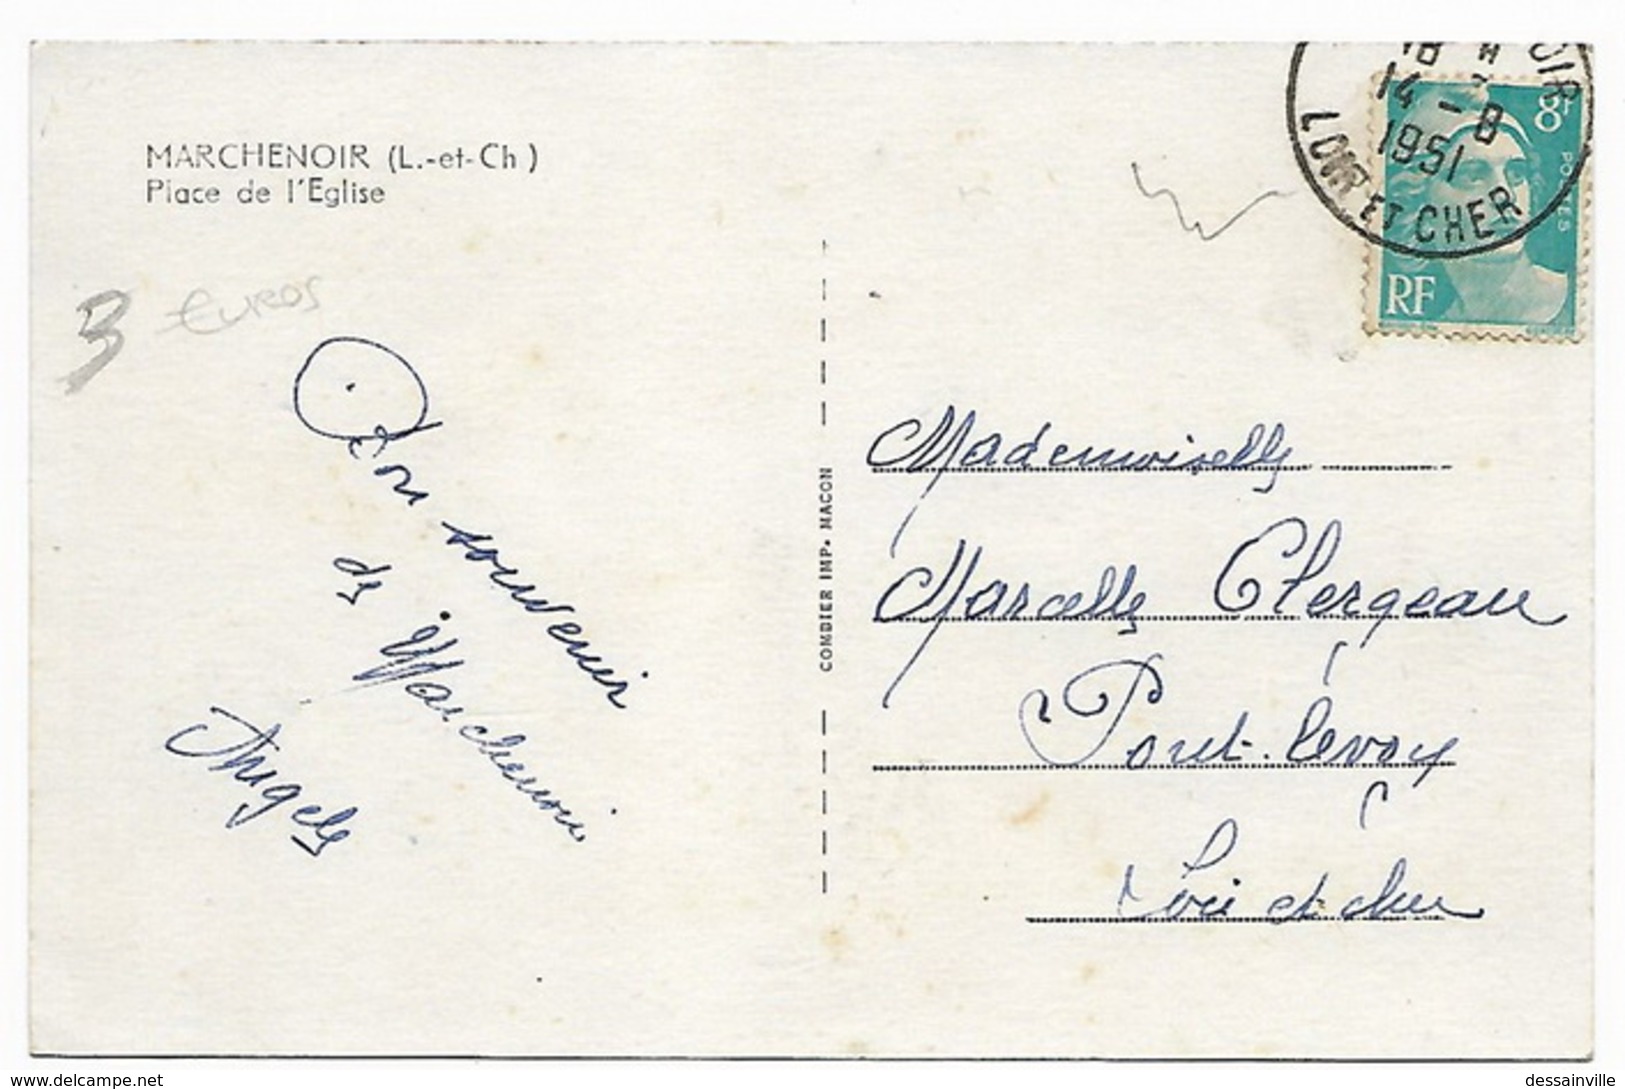 MARCHENOIR (L.-et-Ch)
Place de l'Eglise
3 euros
Bon souvenir
de Marchenoir
Angèle
COMBIER IMP. MACON
18 H
14 - 8
1951
OIR
LOIR ET CHER
8F
POSTES
RF
Mademoiselle
Marcelle Clergeau
Pont-levoy
Loir et cher
www.delcampe.net
dessainville